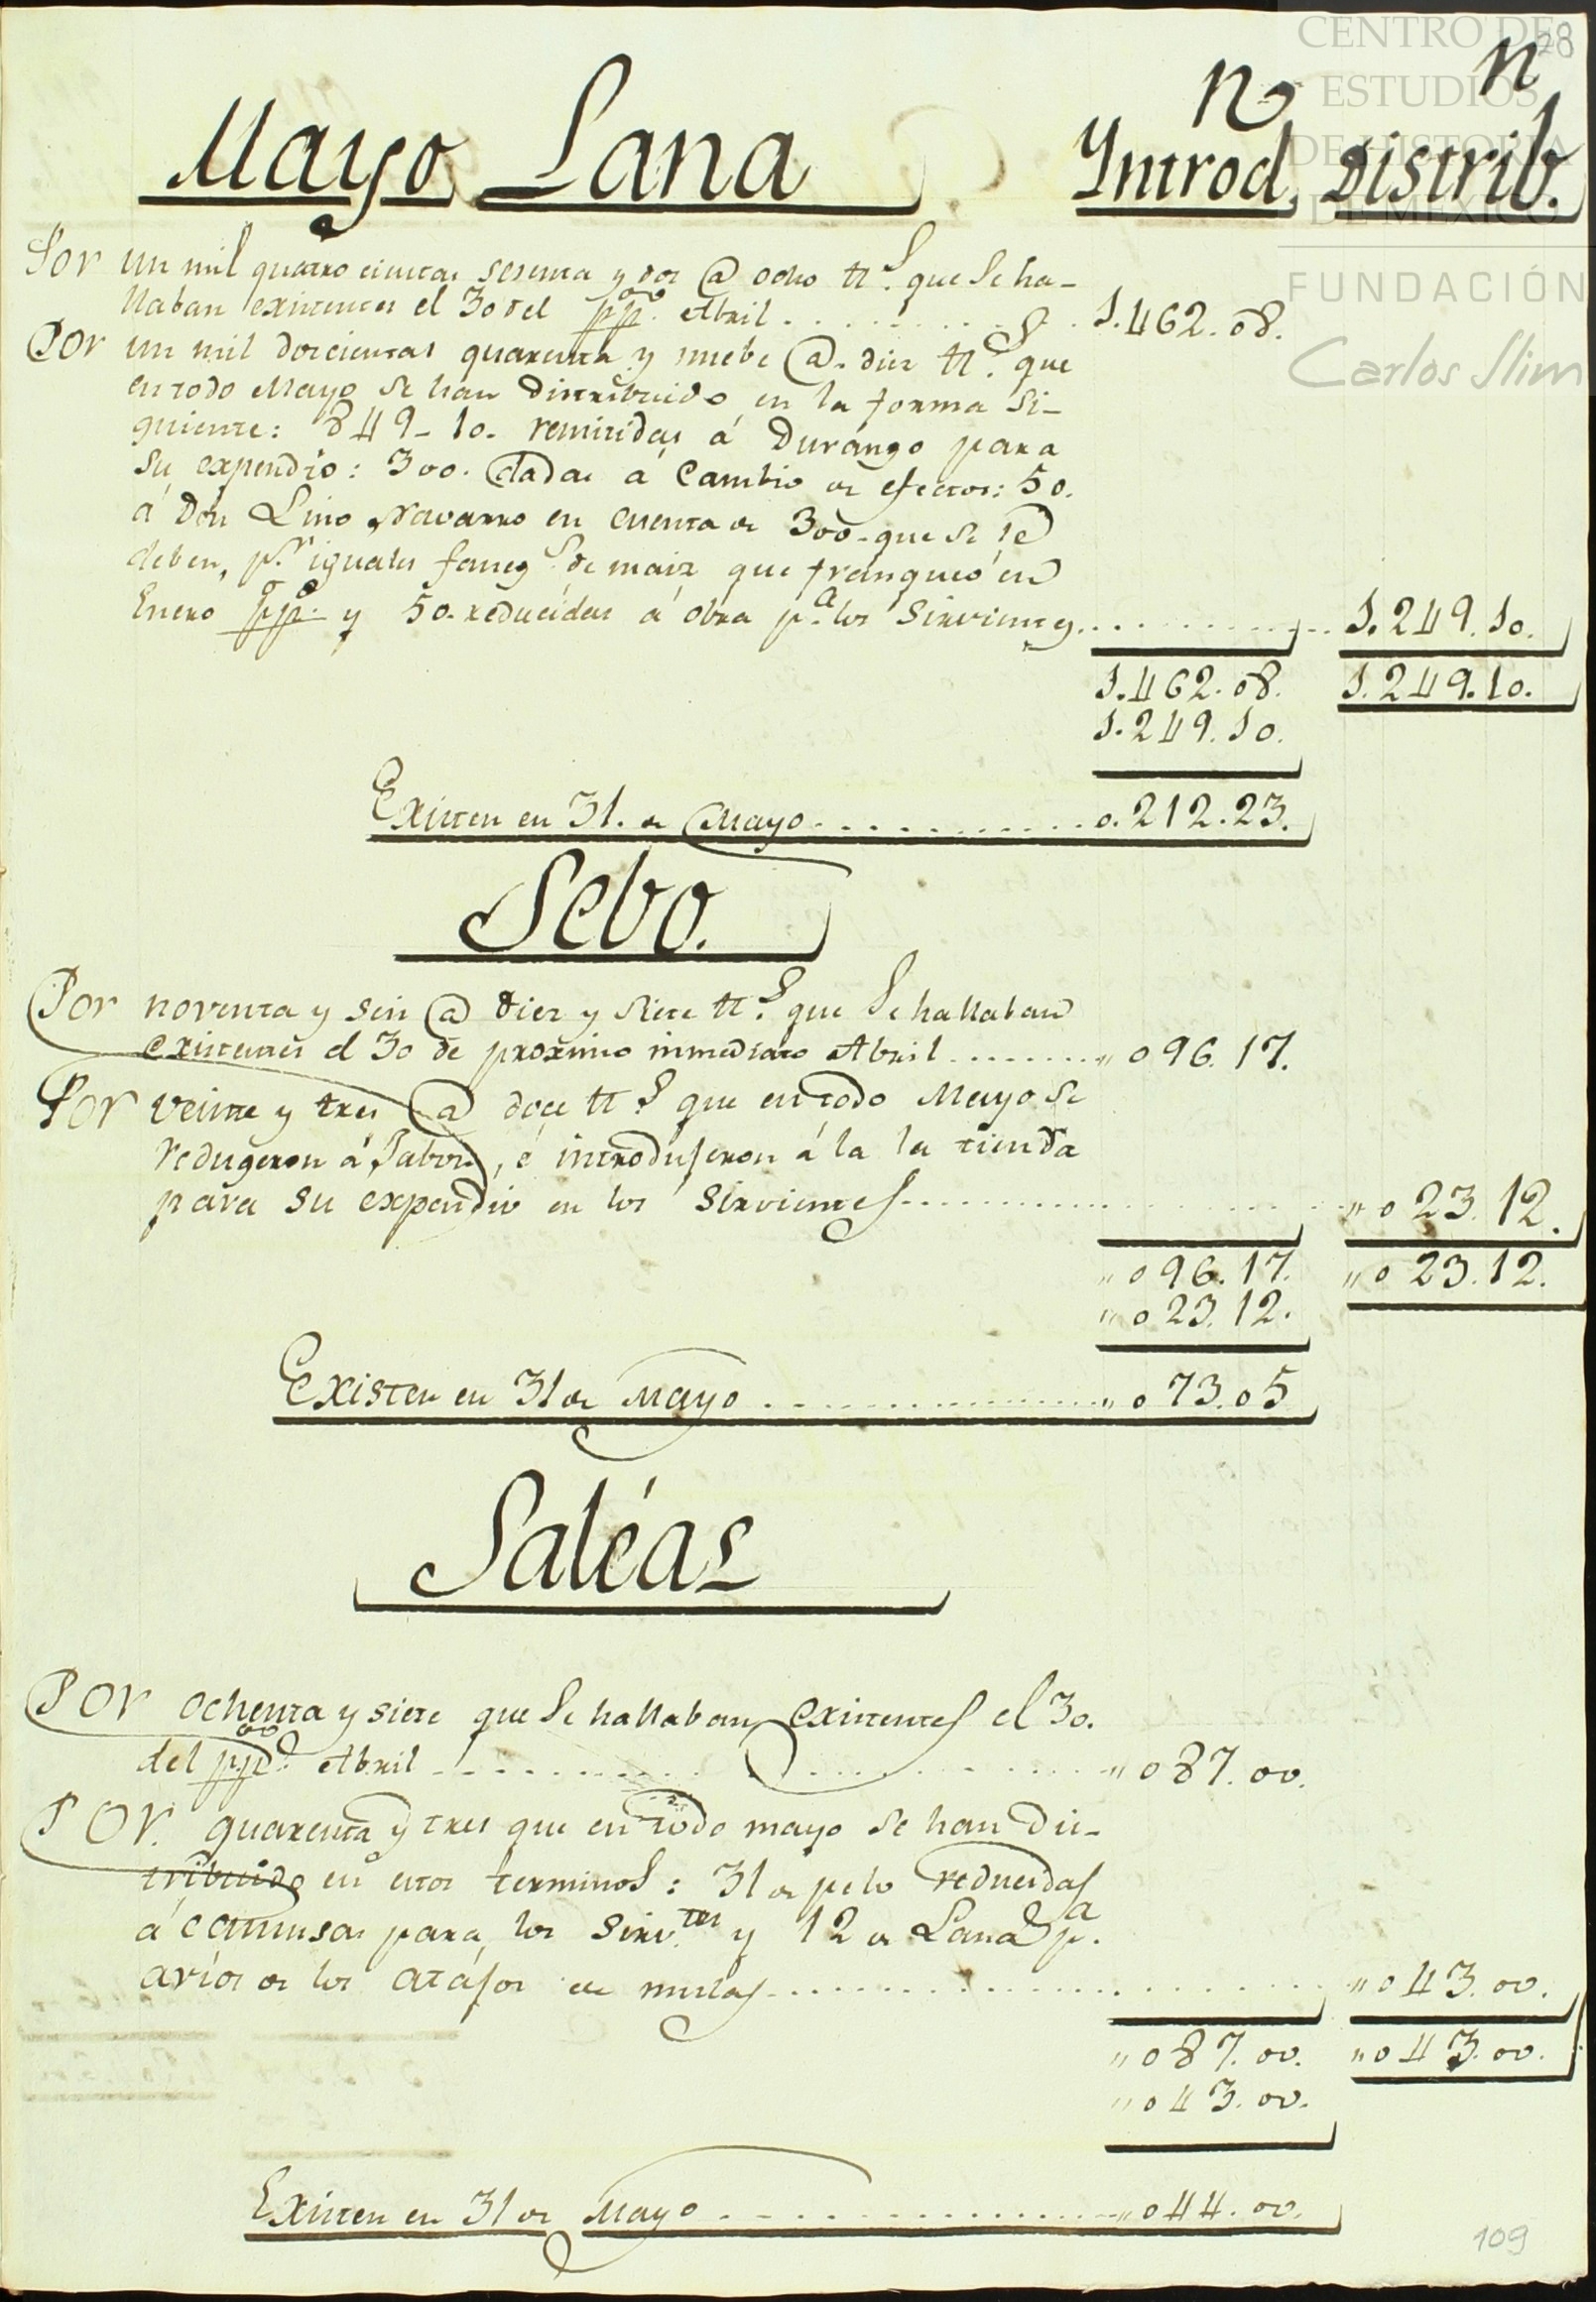 CENTRO DE
ESTUDIOS
DE HISTORIA
DE MEXICO
FUNDACIÓN
Carlos Slim
28
Mayo Lana Introd.n Distrib.n
Por un mil quatro cientas sesenta y dos @ ocho tt.s que se ha-
llaban existentes el 30 del pp.o Abril . . . . 1.462.08.
Por un mil doscientas quarenta y nuebe @. diez tt.s que
en todo Mayo se han distribuido en la forma si-
guiente: 849-10. remitidas á Durango para
su expendio: 300. dadas á cambio de efectos: 50.
á Dôn Lino Navarro en cuenta de 300. que se le
deben, p.r iguales faneg.s de maiz que franqueó en
Enero pp.o y 50. reducidas á obra p.a los Sirvientes . . . . 1.249.10.
1.462.08. 1.249.10.
1.249.10.
Existen en 31. de Mayo . . . . 0.212.23.
Sebo.
Por noventa y seis @ diez y siete tt.s que se hallaban
existentes el 30 de proximo inmediato Abril . . . . „ 096.17.
Por veinte y tres @ doce tt.s que en todo Mayo se
redugeron á Jabon, é introdujeron á la la tienda
para su expendio en los Sirvientes . . . . „ 023.12.
„ 096.17. „ 023.12.
„ 023.12.
Existen en 31 de Mayo . . . . „ 073.05
Saléas
Por ochenta y siete que se hallaban existentes el 30.
del pp.do Abril . . . . „ 087.00.
Por. quarenta y tres que en todo mayo se han dis-
tribuido en estos terminos: 31 de pelo reducidas
á camusas para los Sirv.tes y 12 de Lana p.a
avíos de los atajos de mulas . . . . „ 043.00.
„ 087.00. „ 043.00.
„ 043.00.
Existen en 31 de Mayo . . . . „ 044.00.
109